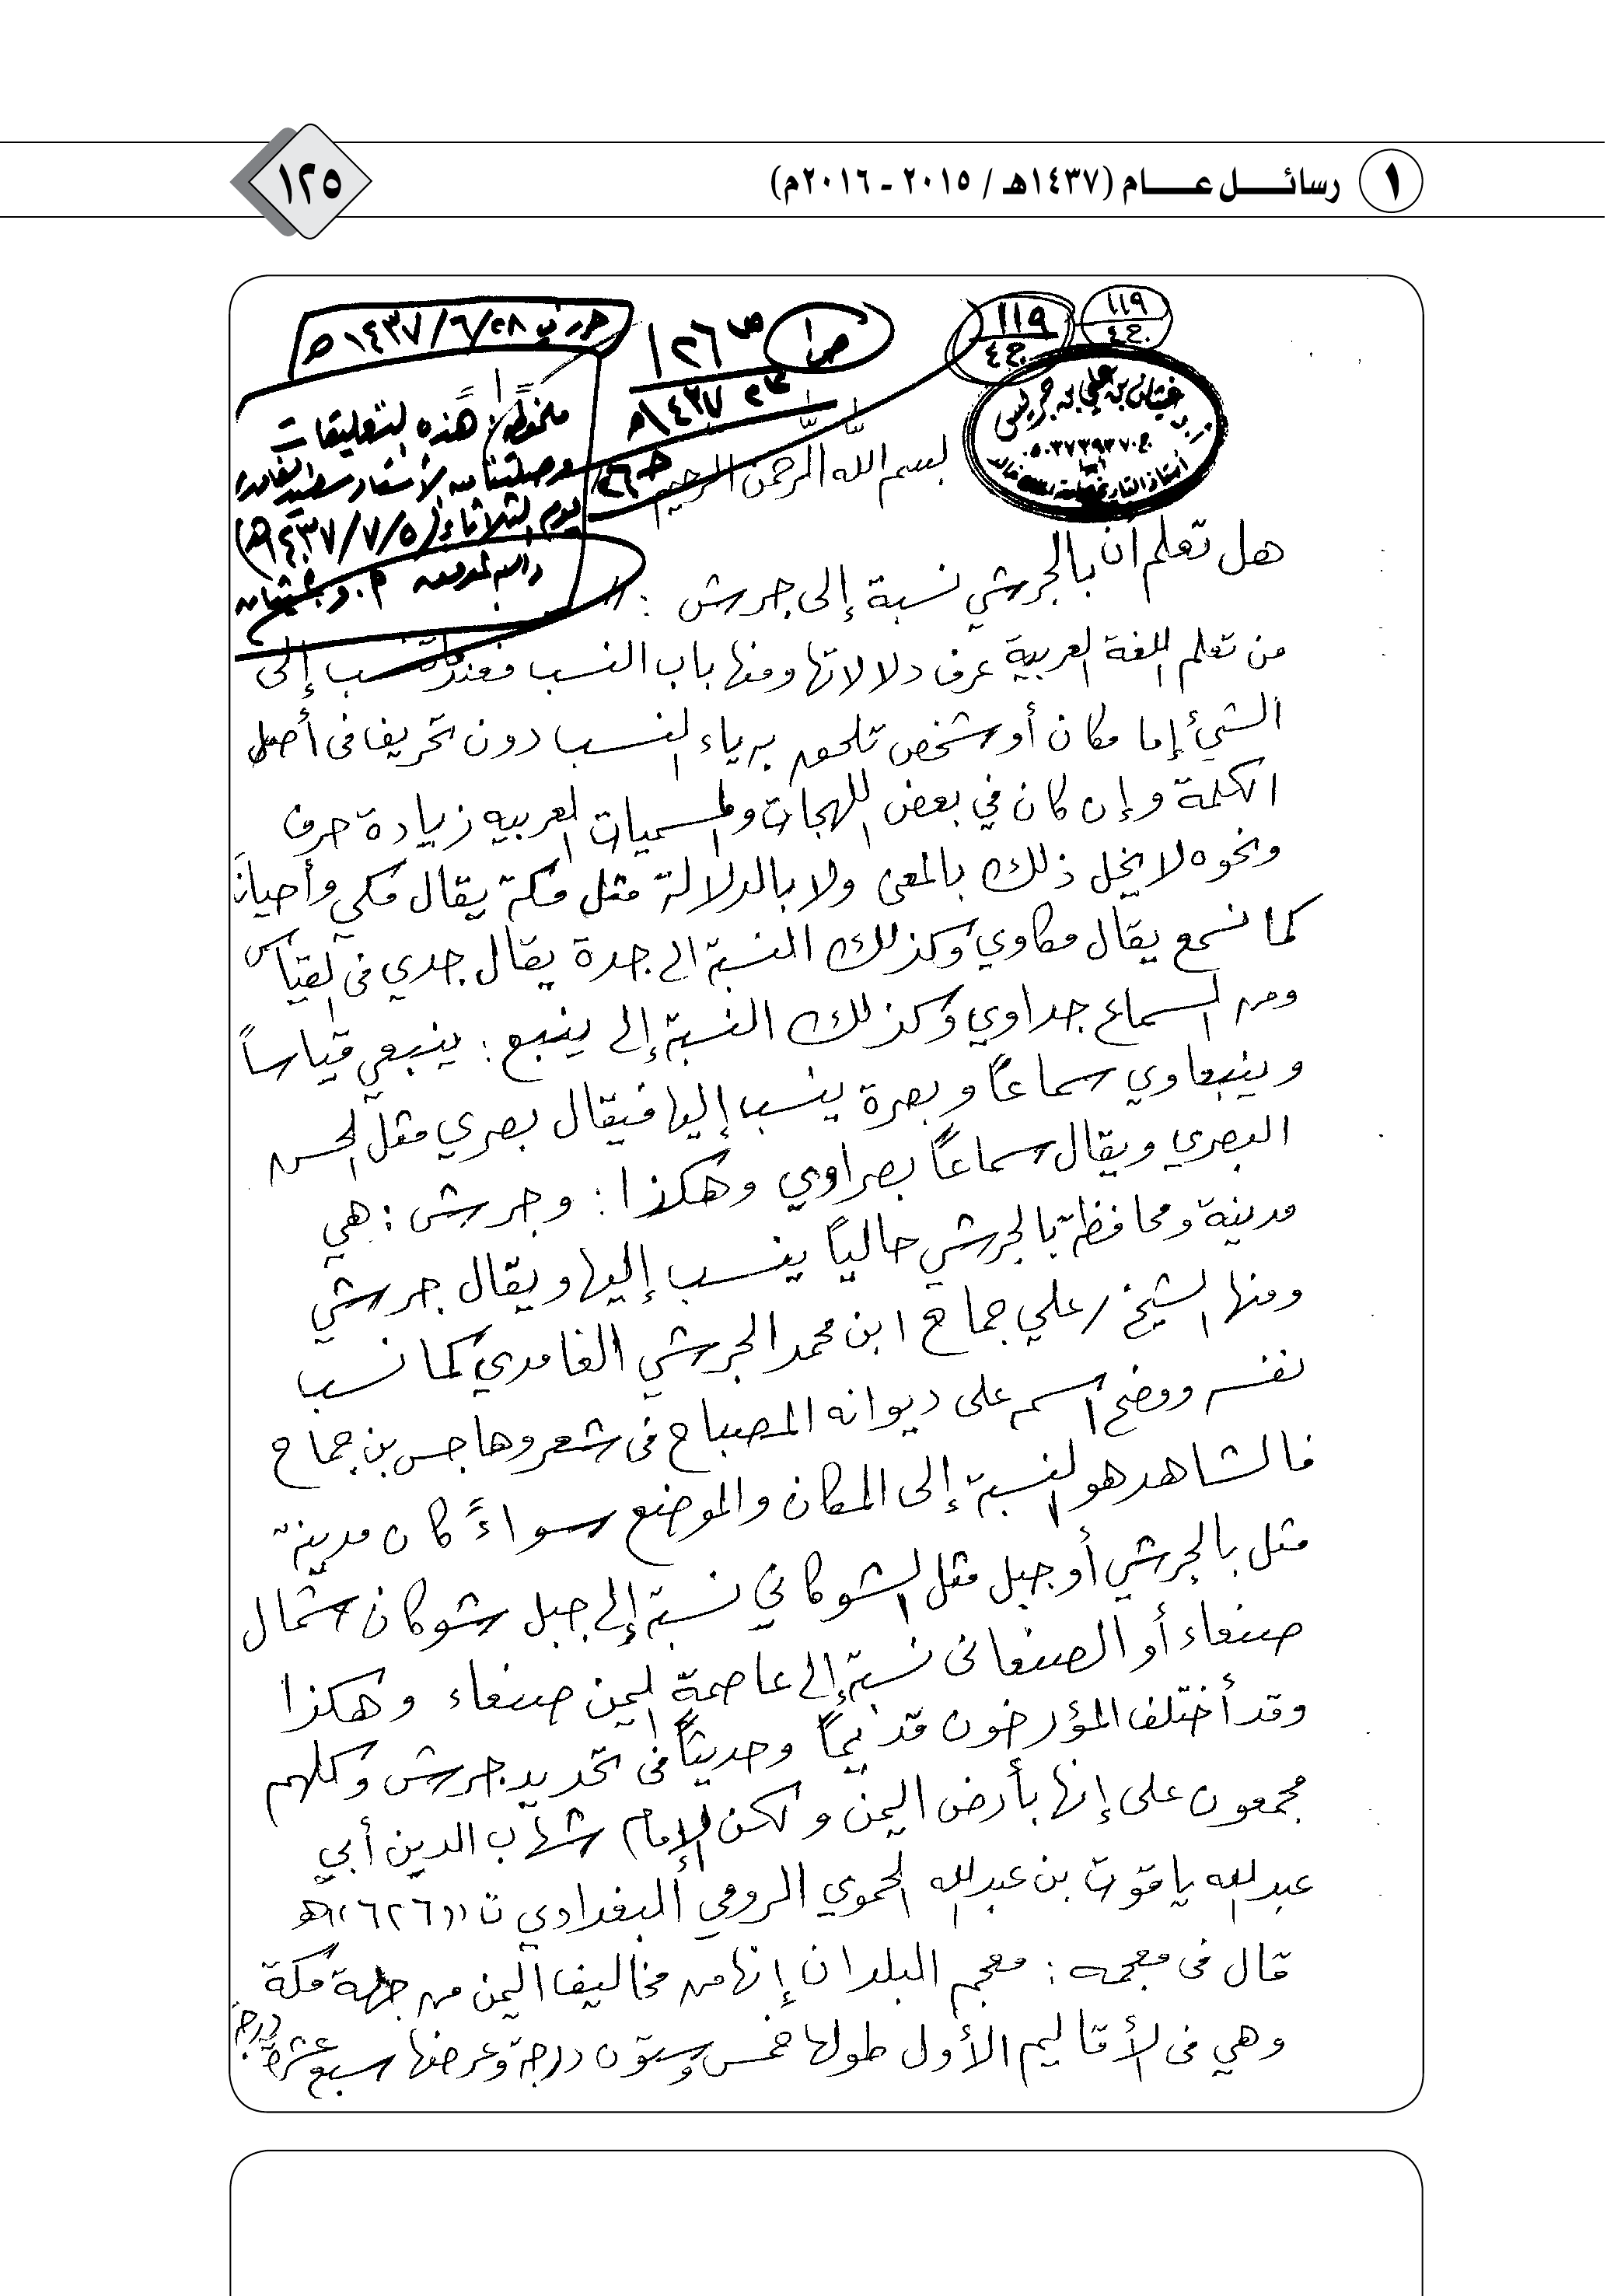 ١ رسائل عام (١٤٣٧هـ / ٢٠١٥ - ٢٠١٦م)
١٢٥
١١٩
ج٤
١١٩
ج٤
ص١
ص ١٢٦
م٢ ١٤٣٧هـ
ج٢٦
حرر في ١٤٣٧/٦/٢٨هـ
ملحوظة: هذه التعليقات
وصلتنا من الأستاذ سعيد الغامدي
يوم الثلاثاء (١٤٣٧/٧/٥هـ)
والله الموفق أ.د. غيثان
أ.د. غيثان بن علي بن جريس
ج ٠٥٠٣٧٣٩٣٧٠
أبها
أستاذ التاريخ جامعة الملك خالد
بسم الله الرحمن الرحيم
هل تعلم أن بالجرشي نسبة إلى جرش :
من تعلم اللغة العربية عرف دلالاتها ومنها باب النسب فعندما تنسب إلى
الشيء إما مكان أو شخص تلحق به ياء النسب دون تحريف في أصل
الكلمة وإن كان في بعض اللهجات والمسميات العربيه زيادة حرف
ونحوه لا يخل ذلك بالمعنى ولا بالدلالة مثل مكة يقال مكي وأحيانا
كما نسمع يقال مكاوي وكذلك النسبة الى جدة يقال جدي في القياس
ومن السماع جداوي وكذلك النسبة إلى ينبع : ينبعي قياساً
وينبعاوي سماعاً وبصرة ينسب إليها فيقال بصري مثل الحسن
البصري ويقال سماعاً بصراوي وهكذا : وجرش : هي
مدينة ومحافظة بالجرشي حالياً ينسب إليها ويقال جرشي
ومنها الشيخ / علي جماح ابن محمد الجرشي الغامدي كما نسب
نفسه ووضح اسمه على ديوانه المصباح في شعر وهاجس بن جماح
فالشاهد هو النسبة إلى المكان والموضع سواءً كان مدينة
مثل بالجرشي أو جبل مثل الشوكاني نسبة إلى جبل شوكان شمال
صنعاء أو الصنعاني نسبة إلى عاصمة اليمن صنعاء وهكذا
وقد أختلف المؤرخون قديماً وحديثاً في تحديد جرش وكلهم
مجمعون على إنها بأرض اليمن ولكن الإمام شهاب الدين أبي
عبدالله ياقوت بن عبدالله الحموي الرومي البغدادي ت ((٦٢٦))هـ
قال في معجمه : معجم البلدان إنها من مخاليف اليمن من جهة مكة
وهي في الأقاليم الأول طولها خمس وستون درجة وعرضها سبع عشرة درجة